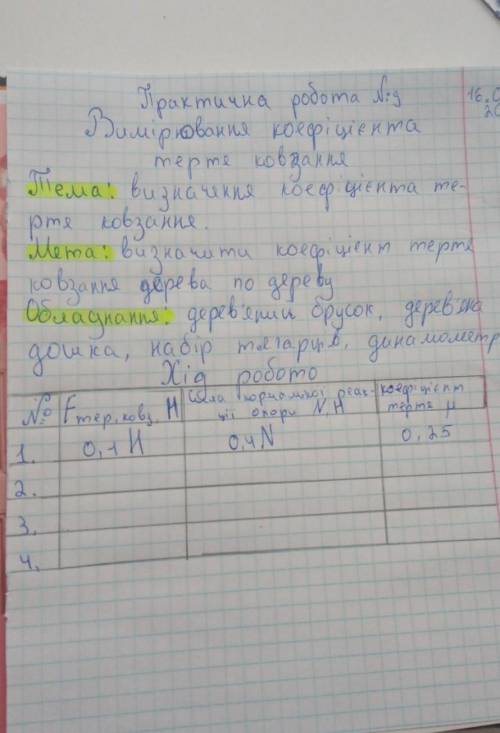 Практична робота №9
16.0
20
Вимірювання коефіцієнта
тертя ковзання
Тема: визначення коефіцієнта те-
ртя ковзання.
Мета: визначити коефіцієнт тертя
ковзання дерева по дереву
Обладнання: дерев'яний брусок, дерев'яна
дошка, набір тягарців, динамометр
Хід робото
№ Fтер.ковз. Н Сила нормальної реак-
ції опори N, Н коефіцієнт
тертя μ
1. 0,1 Н 0,4 N 0,25
2.
3.
4.